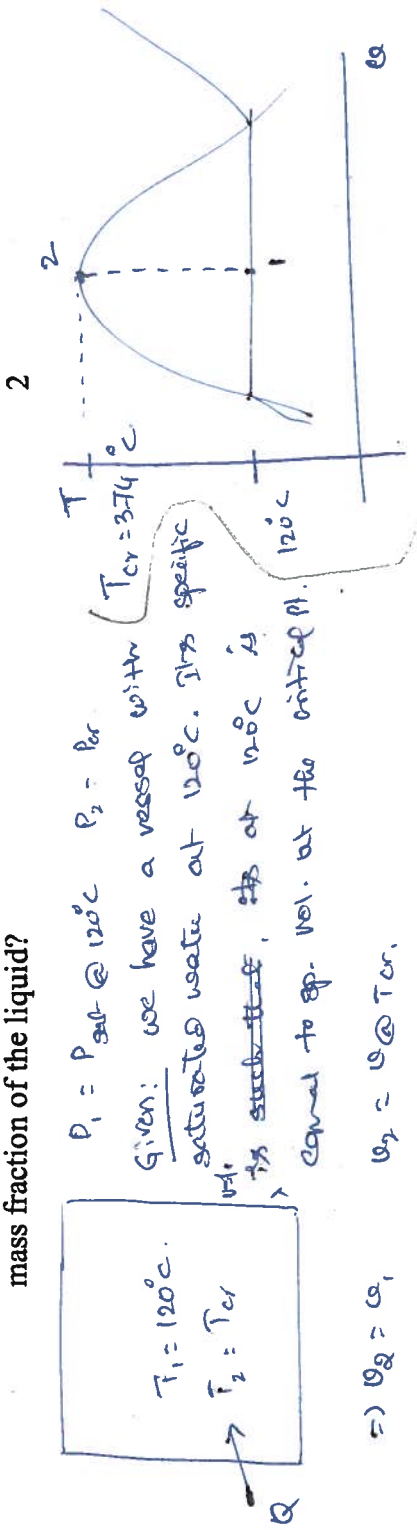 mass fraction of the liquid?
2
T₁ = 120°C.
T₂ = Tcr
Q
P₁ = Psat @ 120°C P₂ = Pcr
Given: we have a vessel with
saturated water at 120°C. Its specific
vol. is such that, its at 120°C is
equal to sp. vol. at the critical pt.
=) v₂ = v₁ v₂ = v @ Tcr.
T
Tcr = 374°C
120°C
2
1
v